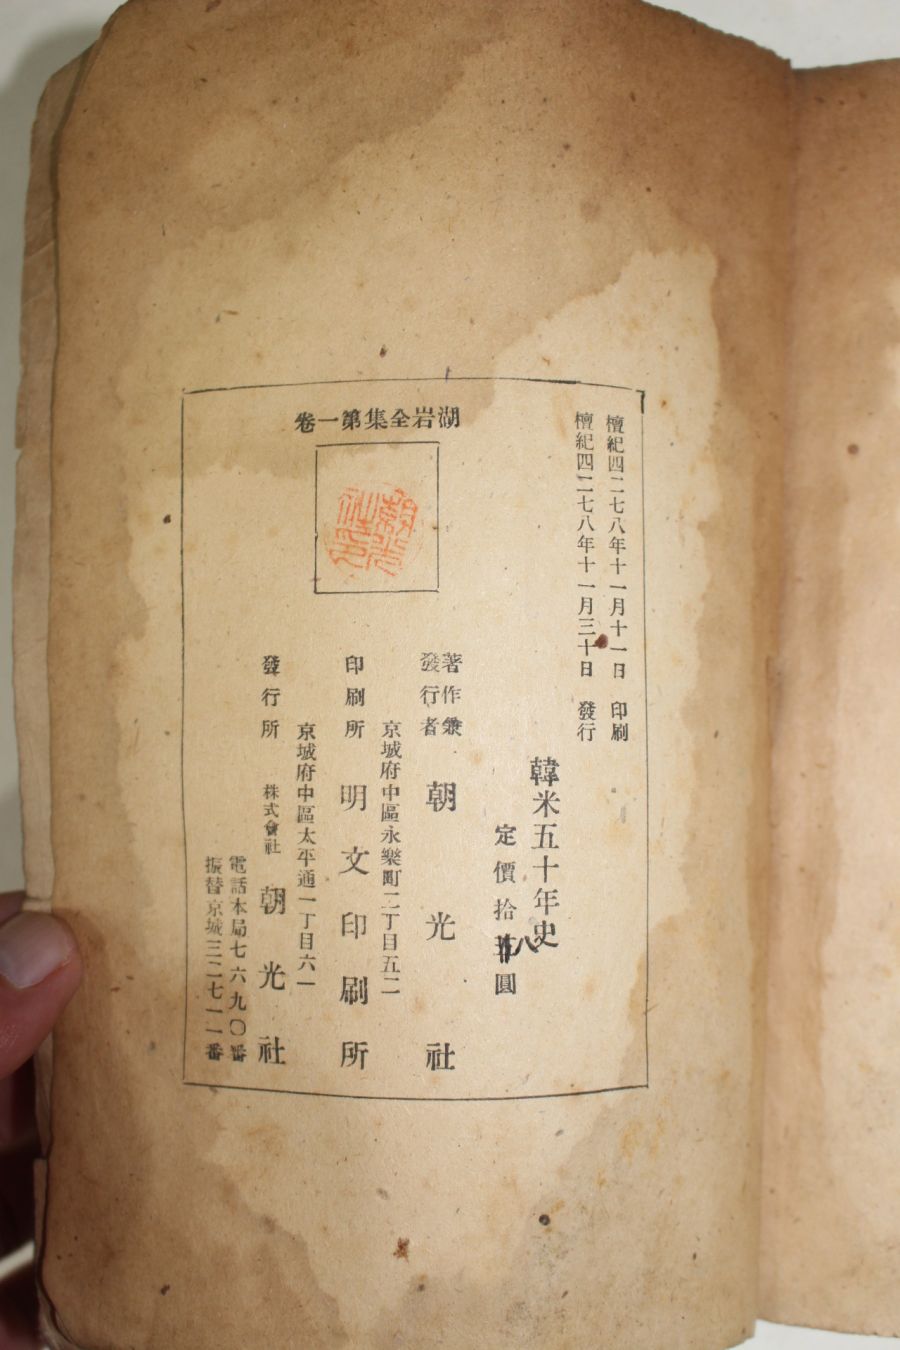 檀紀四二七八年十一月十一日 印刷
檀紀四二七八年十一月三十日 發行
韓米五十年史
定價拾八圓
湖岩全集第一卷
著作兼
發行者 朝光社
京城府中區永樂町二丁目五二
印刷所 明文印刷所
京城府中區太平通一丁目六一
發行所 株式會社 朝光社
電話本局七六九〇番
振替京城三二七一一番
朝光社印